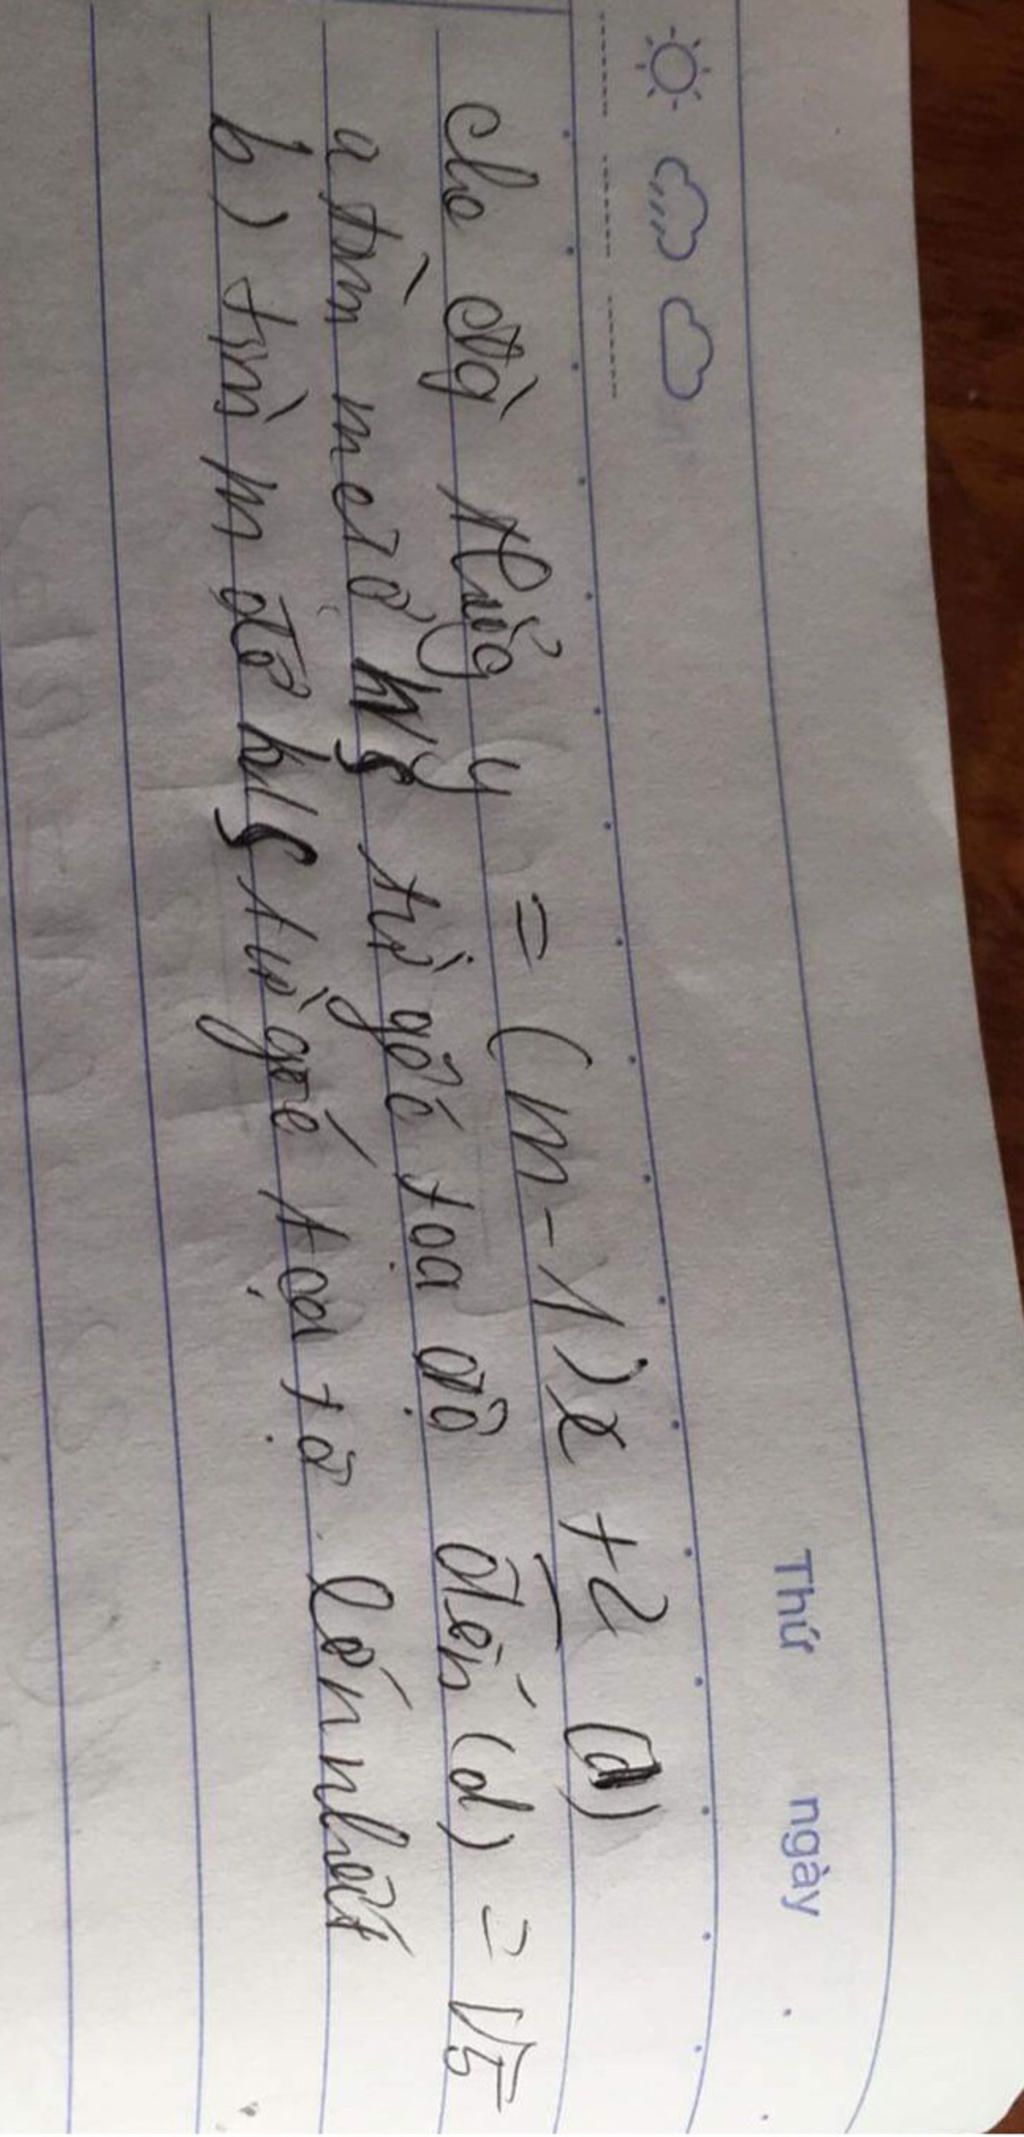 Thứ ngày
cho đg thẳg y = (m-1)x + 2 (d)
a tìm m để k/g từ gốc tọa độ đến (d) = √5
b) tìm m để k/g từ gốc tọa tọ lớn nhất